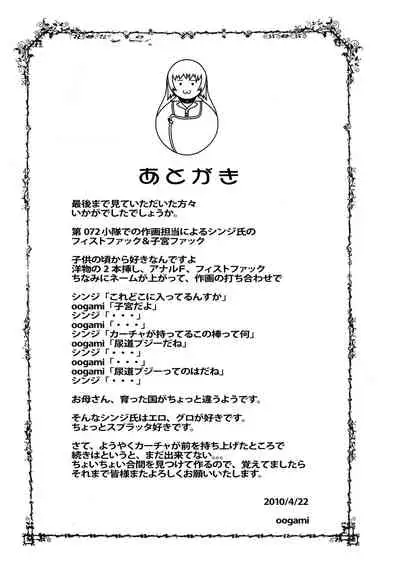 あとがき
最後まで見ていただいた方々
いかがでしたでしょうか。
第072小隊での作画担当によるシンジ氏の
フィストファック＆子宮ファック
子供の頃から好きなんですよ
洋物の2本挿し、アナルF、フィストファック
ちなみにネームが上がって、作画の打ち合わせで
シンジ「これどこに入ってるんすか」
oogami「子宮だよ」
シンジ「・・・」
oogami「・・・」
シンジ「カーチャが持ってるこの棒って何」
oogami「尿道ブジーだね」
シンジ「・・・」
oogami「・・・」
oogami「尿道ブジーってのはだね」
シンジ「・・・」
お母さん、育った国がちょっと違うようです。
そんなシンジ氏はエロ、グロが好きです。
ちょっとスプラッタ好きです。
さて、ようやくカーチャが前を持ち上げたところで
続きはというと、まだ出来てない。。。
ちょいちょい合間を見つけて作るので、覚えてましたら
それまで皆様またよろしくお願いいたします。
2010/4/22
oogami